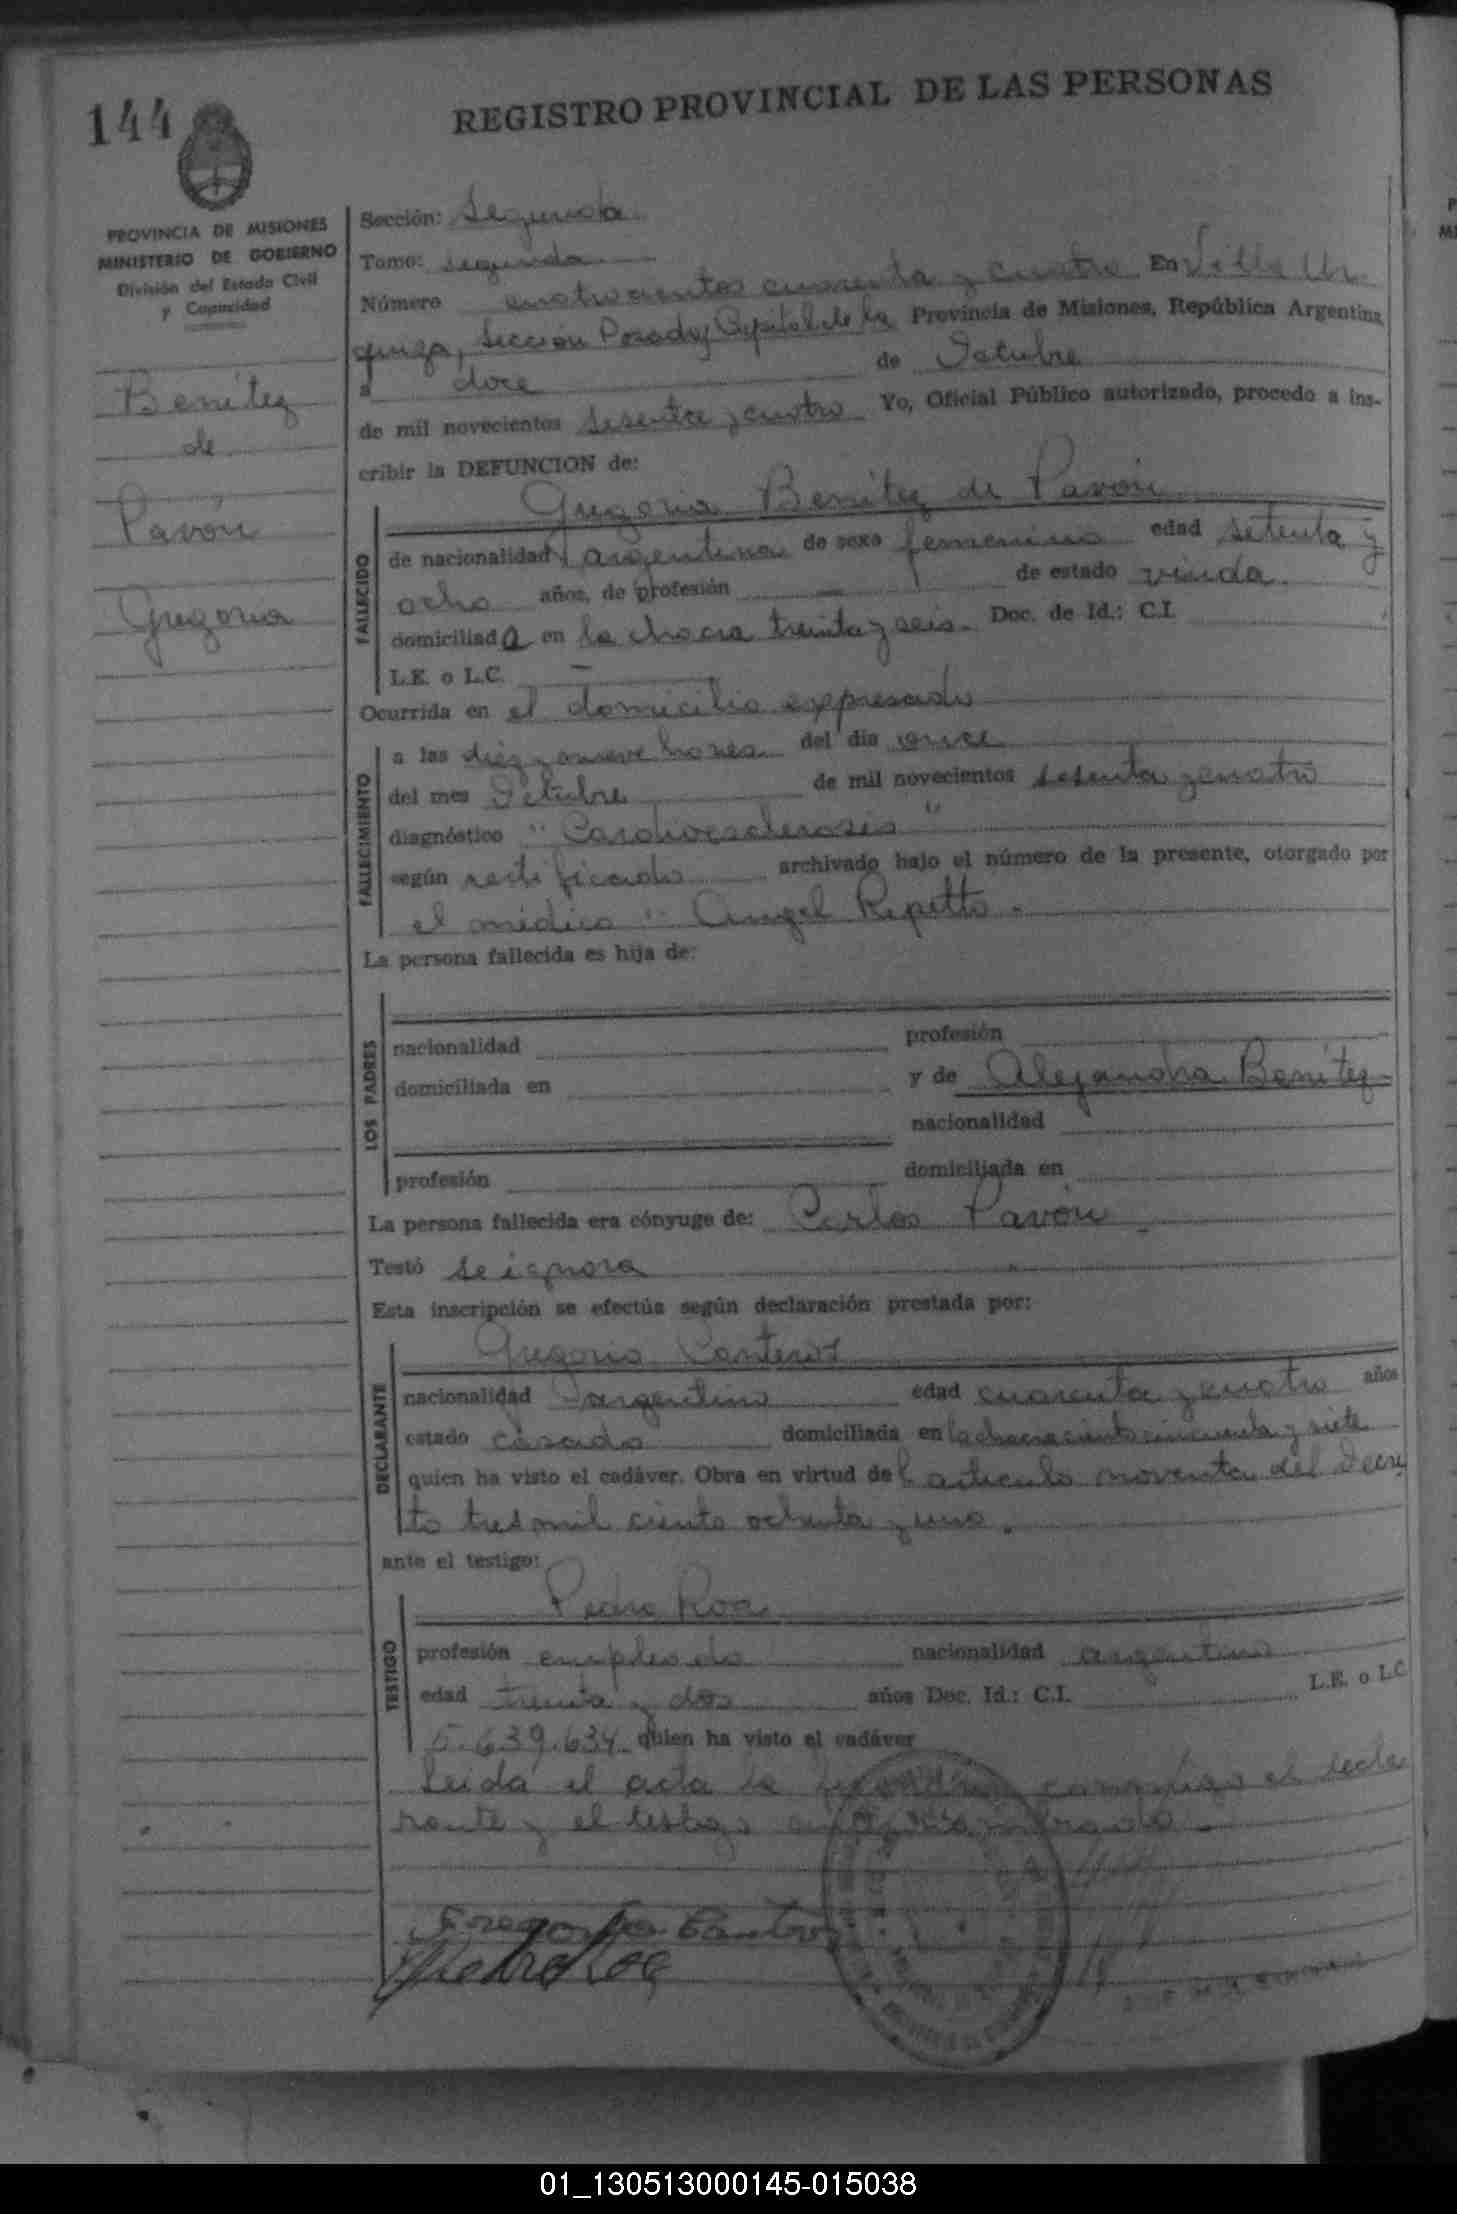 144
REGISTRO PROVINCIAL DE LAS PERSONAS
PROVINCIA DE MISIONES
MINISTERIO DE GOBIERNO
División del Estado Civil
y Capacidad
Benítez
de
Pavón
Gregoria
Sección: Segunda
Tomo: segundo
Número cuatrocientos cuarenta y cuatro En Villa Ur
quiza, Sección Posadas Capital de la Provincia de Misiones, República Argentina
a doce de Octubre
de mil novecientos sesenta y cuatro Yo, Oficial Público autorizado, procedo a ins-
cribir la DEFUNCION de:
Gregoria Benítez de Pavón
FALLECIDO
de nacionalidad argentina de sexo femenino edad setenta y
ocho años, de profesión de estado viuda
domiciliada en la chacra treinta y seis. Doc. de Id.: C.I.
L.E. o L.C. —
Ocurrida en el domicilio expresado
FALLECIMIENTO
a las diez y nueve horas del día once
del mes Octubre de mil novecientos sesenta y cuatro
diagnóstico "Cardioesclerosis"
según certificado archivado bajo el número de la presente, otorgado por
el médico Angel Repetto.
La persona fallecida es hija de:
LOS PADRES
nacionalidad profesión
domiciliada en y de Alejandra Benítez
nacionalidad
profesión domiciliada en
La persona fallecida era cónyuge de: Carlos Pavón
Testó se ignora
Esta inscripción se efectúa según declaración prestada por:
Gregorio Canteros
DECLARANTE
nacionalidad argentino edad cuarenta y cuatro años
estado casado domiciliada en la chacra ciento cincuenta y siete
quien ha visto el cadáver. Obra en virtud del artículo noventa del Decre
to tres mil ciento ochenta y uno.
ante el testigo:
Pedro Roa
TESTIGO
profesión empleado nacionalidad argentino
edad treinta y dos años Doc. Id.: C.I. L.E. o L.C.
5.639.634 quien ha visto el cadáver
Leida el acta la conmigo el decla
rante y el testigo
Pedro Roa
01_130513000145-015038